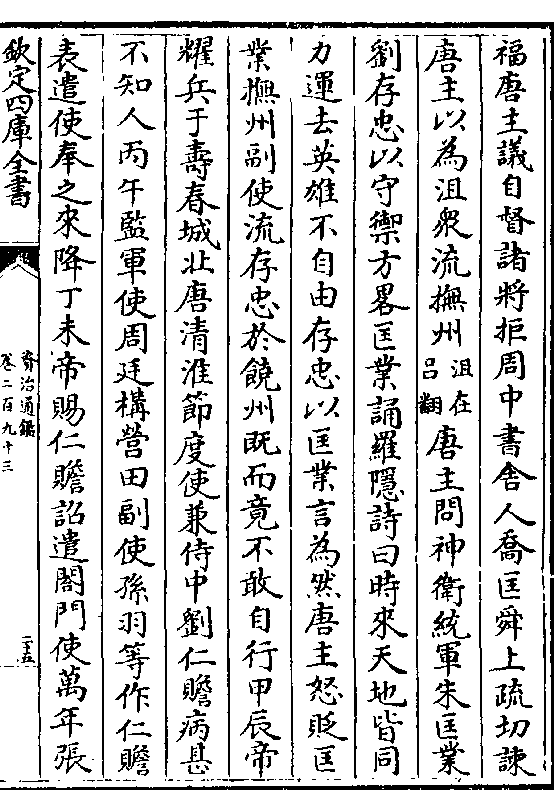 福唐主議自督諸將拒周中書舍人喬匡舜上疏切諫
唐主以為沮衆流撫州沮在呂翻唐主問神衛統軍朱匡業
劉存忠以守禦方畧匡業誦羅隱詩曰時來天地皆同
力運去英雄不自由存忠以匡業言為然唐主怒貶匡
業撫州副使流存忠於饒州既而竟不敢自行甲辰帝
耀兵于壽春城北唐清淮節度使兼侍中劉仁贍病甚
不知人丙午監軍使周廷構營田副使孫羽等作仁贍
表遣使奉之來降丁未帝賜仁贍詔遣閤門使萬年張
欽定四庫全書
資治通鑑
卷二百九十三
二十五